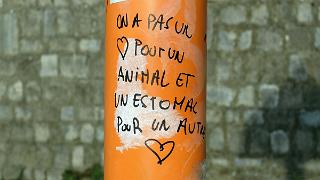 ON A PAS UN
♡ POUR UN
ANIMAL ET
UN ESTOMAC
POUR UN AUTRE